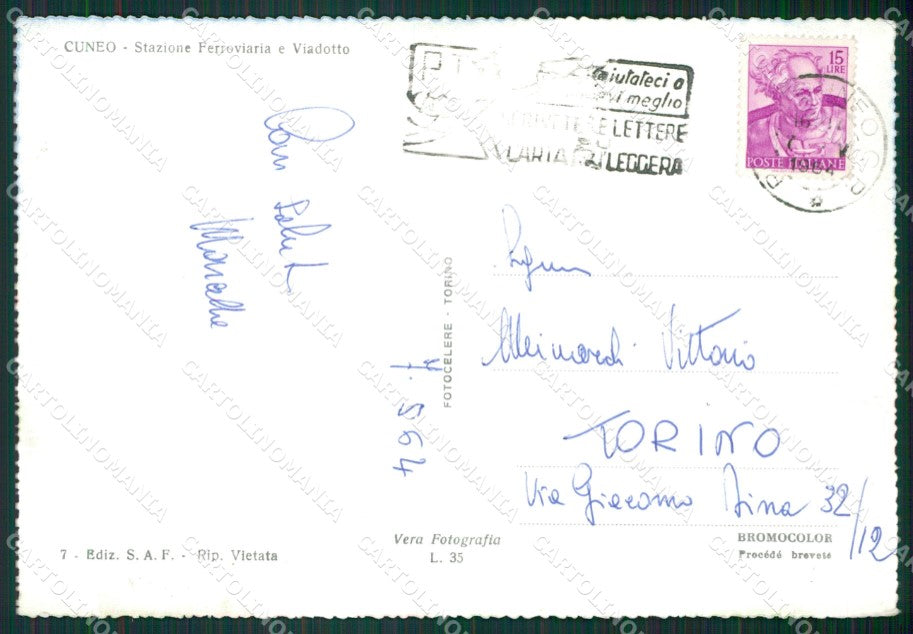 CUNEO - Stazione Ferroviaria e Viadotto
aiutateci a
meglio
SCRIVETE LETTERE
CARTA LEGGERA
15
LIRE
POSTE ITALIANE
CUNEO
1964
Cari saluti
4.5.64
FOTOCELERE - TORINO
Meinardi Vittorio
TORINO
Via Giacomo Dina 32/12
7 - Ediz. S. A. F. - Rip. Vietata
Vera Fotografia
L. 35
BROMOCOLOR
Procédé breveté
CARTOLINOMANIA